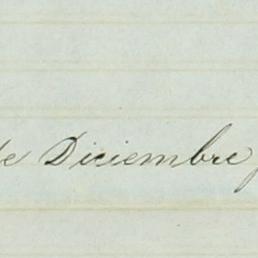 de Diciembre